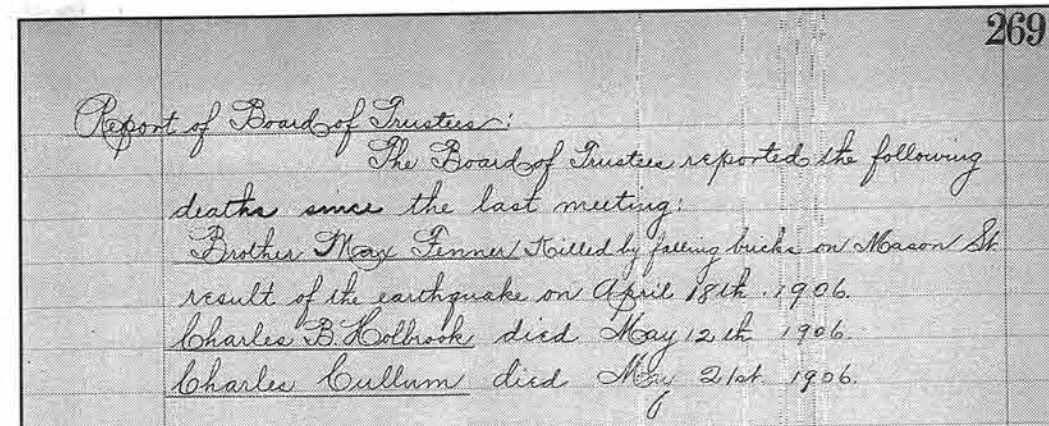 269
Report of Board of Trustees:
The Board of Trustees reported the following
deaths since the last meeting:
Brother Max Fenner Killed by falling bricks on Mason St.
result of the earthquake on April 18th. 1906.
Charles B. Holbrook died May 12th 1906.
Charles Cullum died May 21st. 1906.